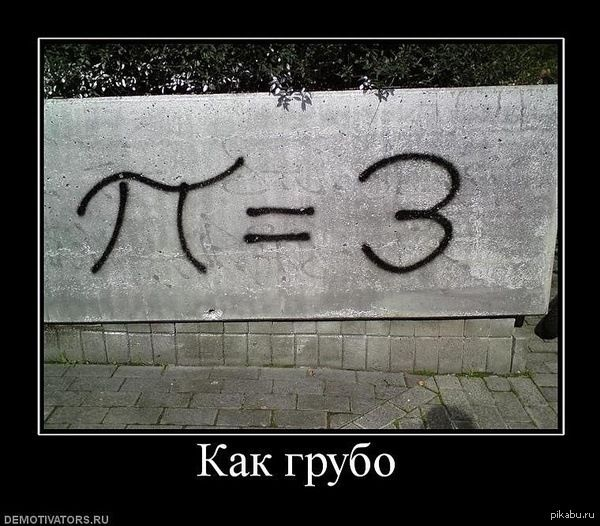 π = 3
Как грубо
DEMOTIVATORS.RU
pikabu.ru